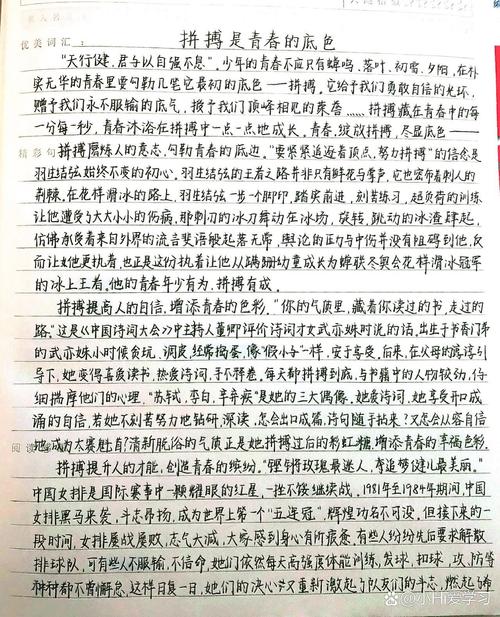 拼搏是青春的底色
优美词汇：
"天行健，君子以自强不息"。少年的青春不应只有蝉鸣、落叶、初雪、夕阳，在朴
实无华的青春里要勾勒几笔它最初的底色——拼搏。它给予我们勇敢自信的光环，
赠予我们永不服输的底气，授予我们顶峰相见的承诺……拼搏藏在青春中的每
一分每一秒，青春沐浴在拼搏中一点一点地成长。青春，绽放拼搏，尽显底色——
精彩句
拼搏磨炼人的意志，勾勒青春的底边。"要紧紧追逐着顶点，努力拼搏"的信念是
羽生结弦始终不变的初心。羽生结弦的王者之路并非只有鲜花与掌声，它也密布着刺人的
荆棘，在花样滑冰的路上，羽生结弦一步一个脚印，踏实前进，刻苦练习，超负荷的训练
让他遭受了大大小小的伤病，那刺刀的冰刀舞动在冰场，旋转，跳动的冰渣肆起，
仿佛承受着来自外界的流言蜚语般起落无常，舆论的压力与中伤并没有阻碍到他，反
而让他更执着，也正是这份执着让他从蹒跚幼童成长为蝉联冬奥会花样滑冰冠军
的冰上王者。他的青春年少有为，拼搏有成。
拼搏提高人的自信，增添青春的色彩。"你的气质里，藏着你读过的书，走过的
路。"这是《中国诗词大会》中主持人董卿评价诗词才女武亦姝时说的话，出生于书香门第
的武亦姝小时候贪玩，调皮，经常捣蛋，像"假小子"一样，安于享受，后来，在父母的谆谆引
导下，她变得喜爱读书，热爱诗词，手不释卷。每天都拼搏到底，与书籍中的人物较劲，仔
细揣摩他们的心理。"苏轼，李白，辛弃疾"是她的三大偶像，她爱诗词，她享受开口成
诵的自信，若她不刻苦努力地钻研，深读，怎会出口成篇，诗句随手拈来？又怎会从容自信
阅读
地成为大赛魁首？清新脱俗的气质正是她拼搏过后的彩虹糖，增添青春的幸福色彩。
拼搏提升人的才能，创造青春的缤纷。"铿锵玫瑰最迷人，奔追梦健儿最美丽。"
中国女排是国际赛事中一颗耀眼的红星，一挫不馁继续战。1981年至1984年期间，中国
女排黑马来袭，斗志昂扬，成为世界上第一个"五连冠"，辉煌功名不可没。但接下来的一
段时间，女排屡战屡败，志气大减，大家感到身心有所疲惫，有些人纷纷先后要求解散
排球队，可有些人不服输，不信命，她们依然每天高强度体能训练，发球，扣球，攻，防等
种种都不曾懈怠，这样日复一日，她们的决心又重新激起了队友们的斗志，燃起了希
小Hi爱学习